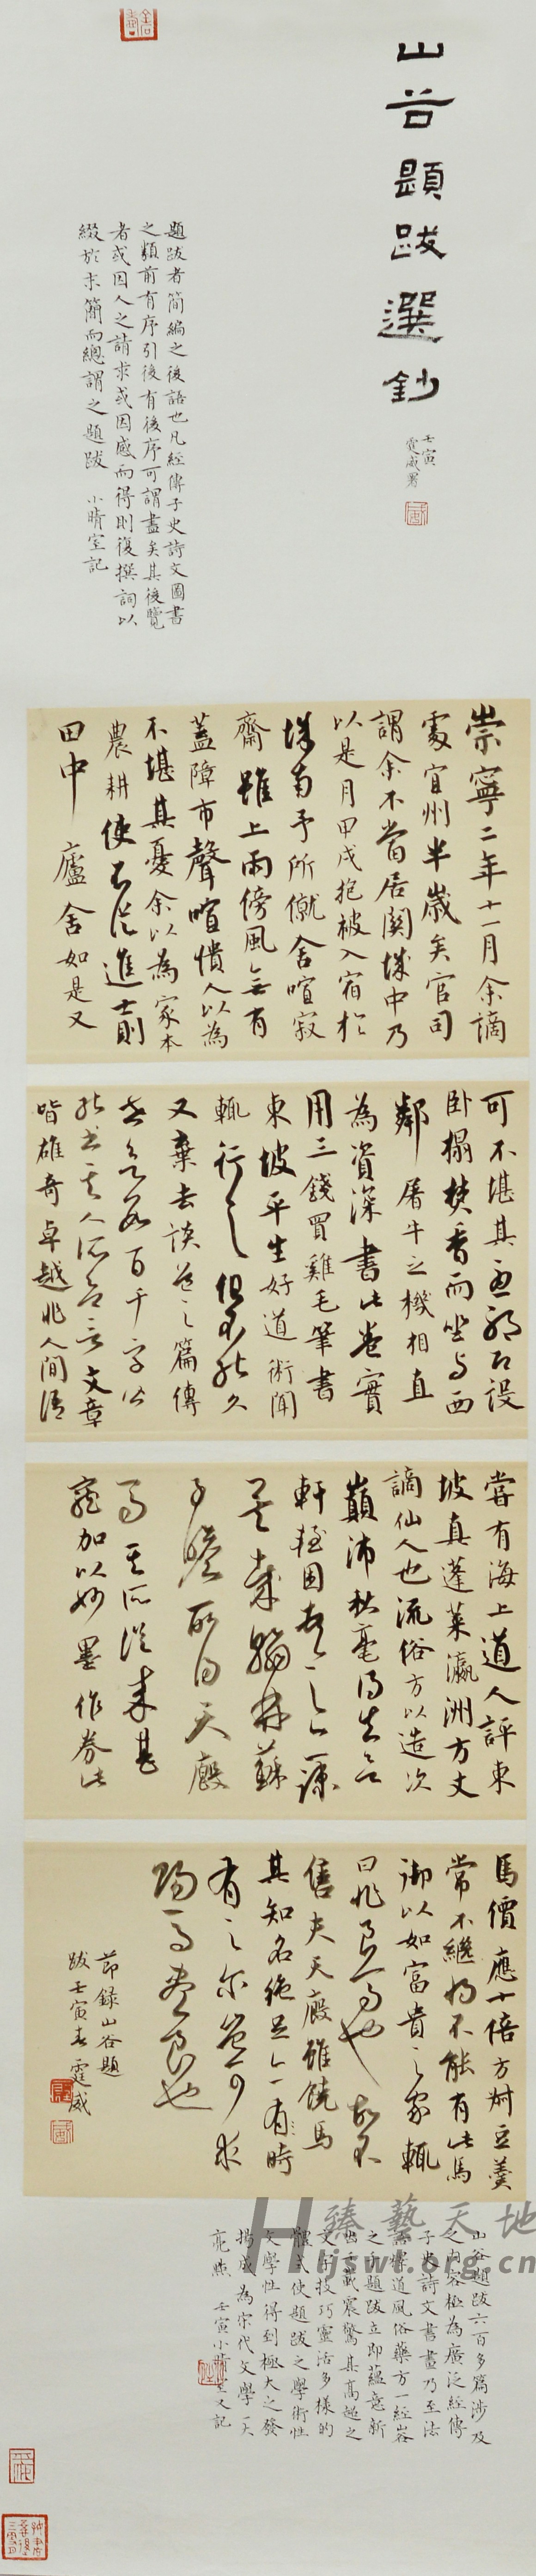 山谷題跋選鈔
壬寅
霆威署
題跋者簡編之後語也凡經傳子史詩文圖書
之類前有序引後有後序可謂盡矣其後覽
者或因人之請求或因感而得則復撰詞以
綴於末簡而總謂之題跋 小晴室記
崇寧二年十一月余謫
處宜州半歲矣官司
謂余不當居關城中乃
以是月甲戌抱被入宿於
城南予所僦舍喧寂
齋雖上雨傍風無有
蓋障市聲喧憒人以為
不堪其憂余以為家本
農耕使不從進士則
田中廬舍如是又
可不堪其憂耶既設
卧榻焚香而坐與西
鄰屠牛之機相直
為資深書此卷實
用三錢買雞毛筆書
東坡平生好道術聞
輒行之但不能久
又棄去談道之篇傳
世欲數百千字公
能書其人所欲言文章
皆雄奇卓越非人間語
嘗有海上道人評東
坡真蓬萊瀛洲方丈
謫仙人也流俗方以造次
顛沛秋毫得失欲
軒輊困頓之亦疎
矣 翰林蘇
子瞻所得天廄
馬其所從來甚
寵加以妙墨作券此
馬價應十倍方叔豆羹
常不繼將不能有此馬
御以如富貴之家輒
曰非良馬也故不
售夫天廄雖饒馬
其知名絕足亦時
有之爾豈可求
賜馬盡良也
節錄山谷題
跋壬寅春霆威
山谷題跋六百多篇涉及
之內容極為廣泛經傳
子史詩文書畫乃至法
道風俗藥方一經山谷
之手題跋立即蘊意新
震驚其高超之
文字技巧靈活多樣的
式使題跋之學術性
文學性得到極大之發
揚成為宋代文學一大
亮點 壬寅小晴室又記
臻藝天地
Hljswt.org.cn